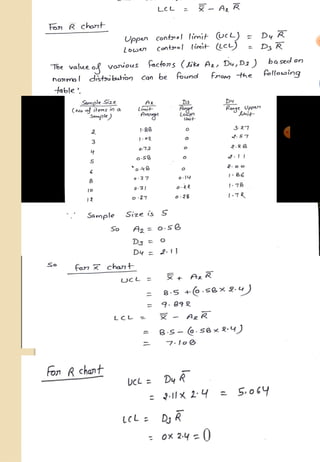 LCL = X̄̄ - A₂ R̄
For R chart
Upper control limit (UCL) = D4 R̄
Lower control limit (LCL) = D3 R̄
The value of various factors (like A2, D4, D3) based on
normal distribution can be found From the following
table:
Sample Size A2 D3 D4
(no of items in a Limit Range Range Upper
Sample) Average Lower Limit
Limit
2 1.88 0 3.27
3 1.02 0 2.57
4 0.73 0 2.28
5 0.58 0 2.11
6 0.48 0 2.00
8 0.37 0.14 1.86
10 0.31 0.22 1.78
12 0.27 0.28 1.72
∵ Sample Size is 5
So A2 = 0.58
D3 = 0
D4 = 2.11
So For X̄ chart
UCL = X̄̄ + A2 R̄
= 8.5 + (0.58 × 2.4)
= 9.892
LCL = X̄̄ - A2 R̄
= 8.5 - (0.58 × 2.4)
= 7.108
For R chart
UCL = D4 R̄
= 2.11 × 2.4 = 5.064
LCL = D3 R̄
= 0 × 2.4 = 0